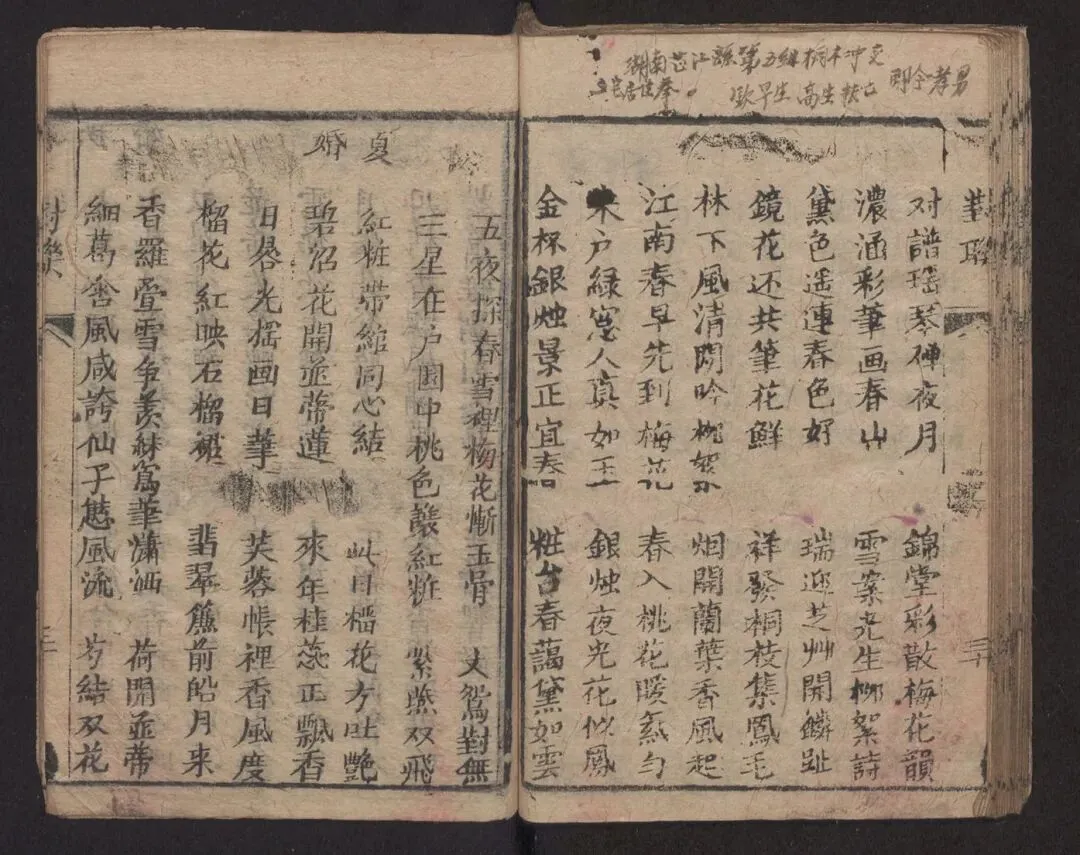 湖南芷江縣第五組桐木冲交
歐早生 高生
对譜瑶琴弹夜月 錦堂彩散梅花韻
濃涵彩筆画春山 雪案光生柳絮詩
黛色遥連春色好 瑞迎芝艸開麟趾
鏡花还共筆花鮮 祥發桐枝集鳳毛
林下風清閒吟柳絮 烟開蘭葉香風起
江南春早先到梅花 春入桃花暖氣勻
朱户緑窓人真如玉 銀烛夜光花似鳳
金杯銀烛景正宜春 粧台春藹黛如雲
三十
五夜探春雪裡杨花慚玉骨
三星在户園中桃色釀紅粧
夏婚
紅粧带綰同心結 此日榴花方吐艷
碧沼花開並蒂蓮 來年桂蕊正飄香
日晷光摇画日華 芙蓉帳裡香風度
榴花紅映石榴裙 翡翠簾前皓月来
香羅疊雪争羡 華瀟洒 荷開並蒂
細葛含風咸誇仙子 風流 芍結双花